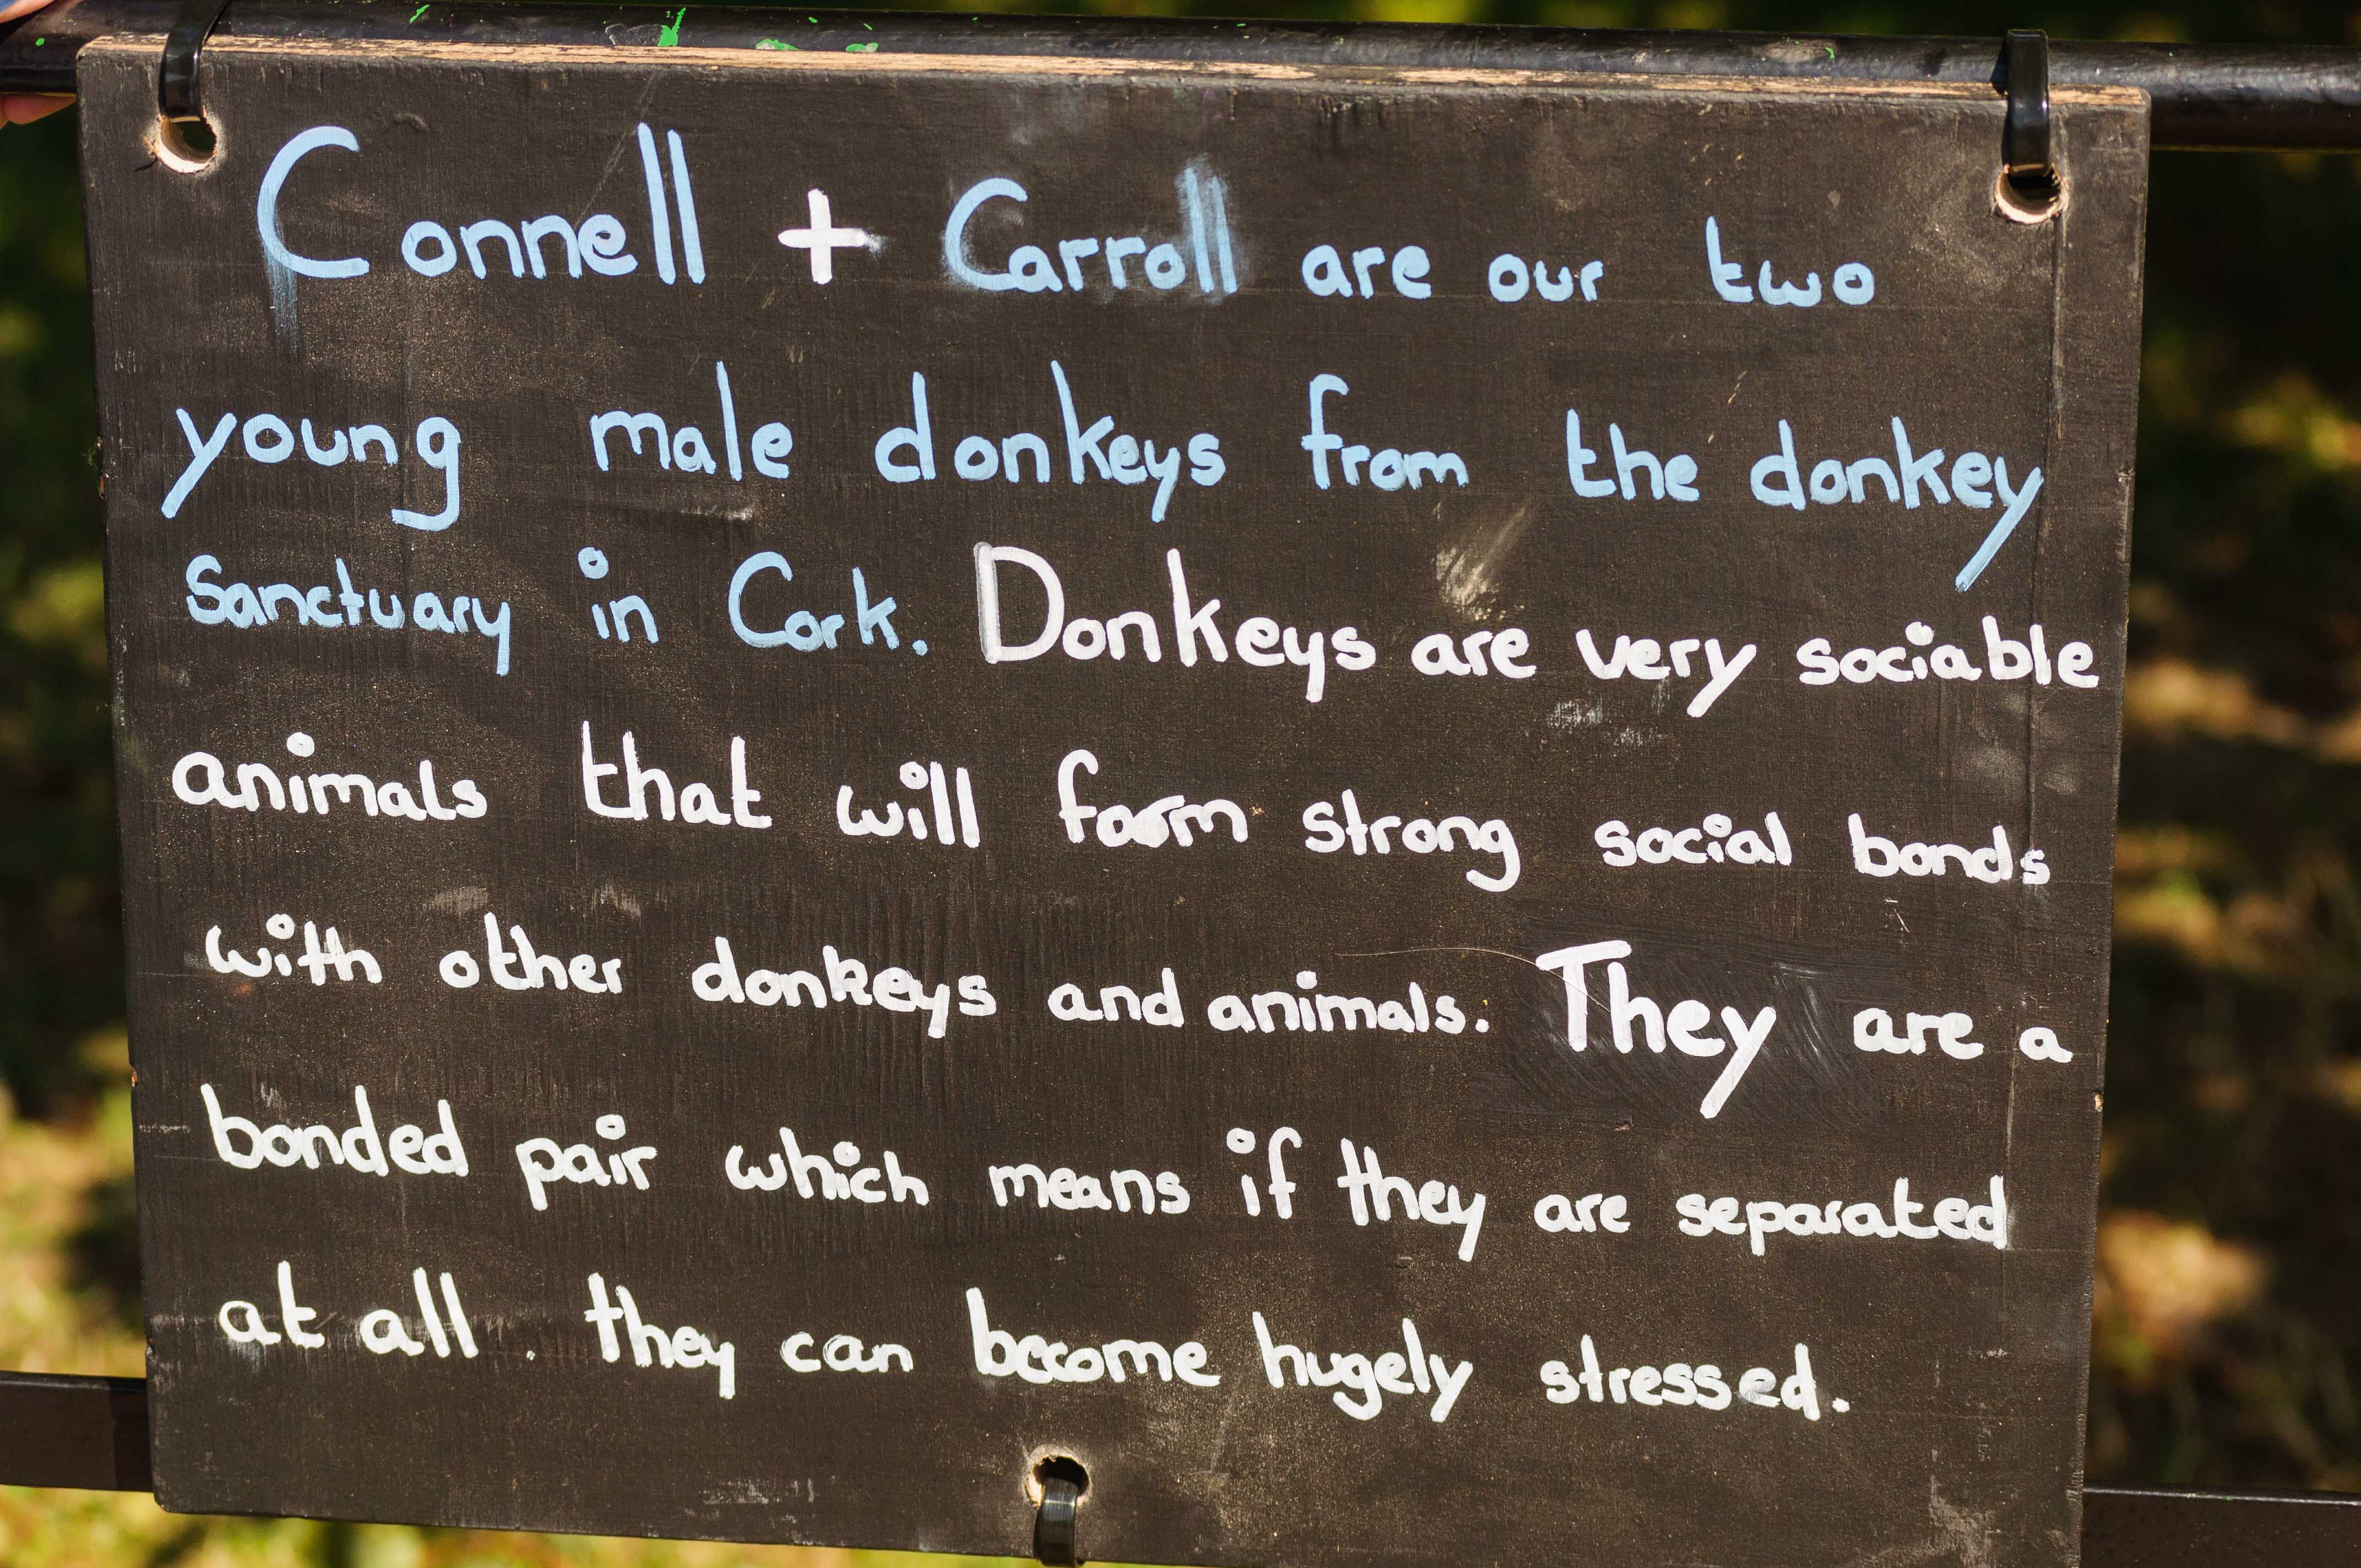 Connell + Carroll are our two
young male donkeys from the donkey
Sanctuary in Cork. Donkeys are very sociable
animals that will form strong social bonds
with other donkeys and animals. They are a
bonded pair which means if they are separated
at all . they can become hugely stressed.